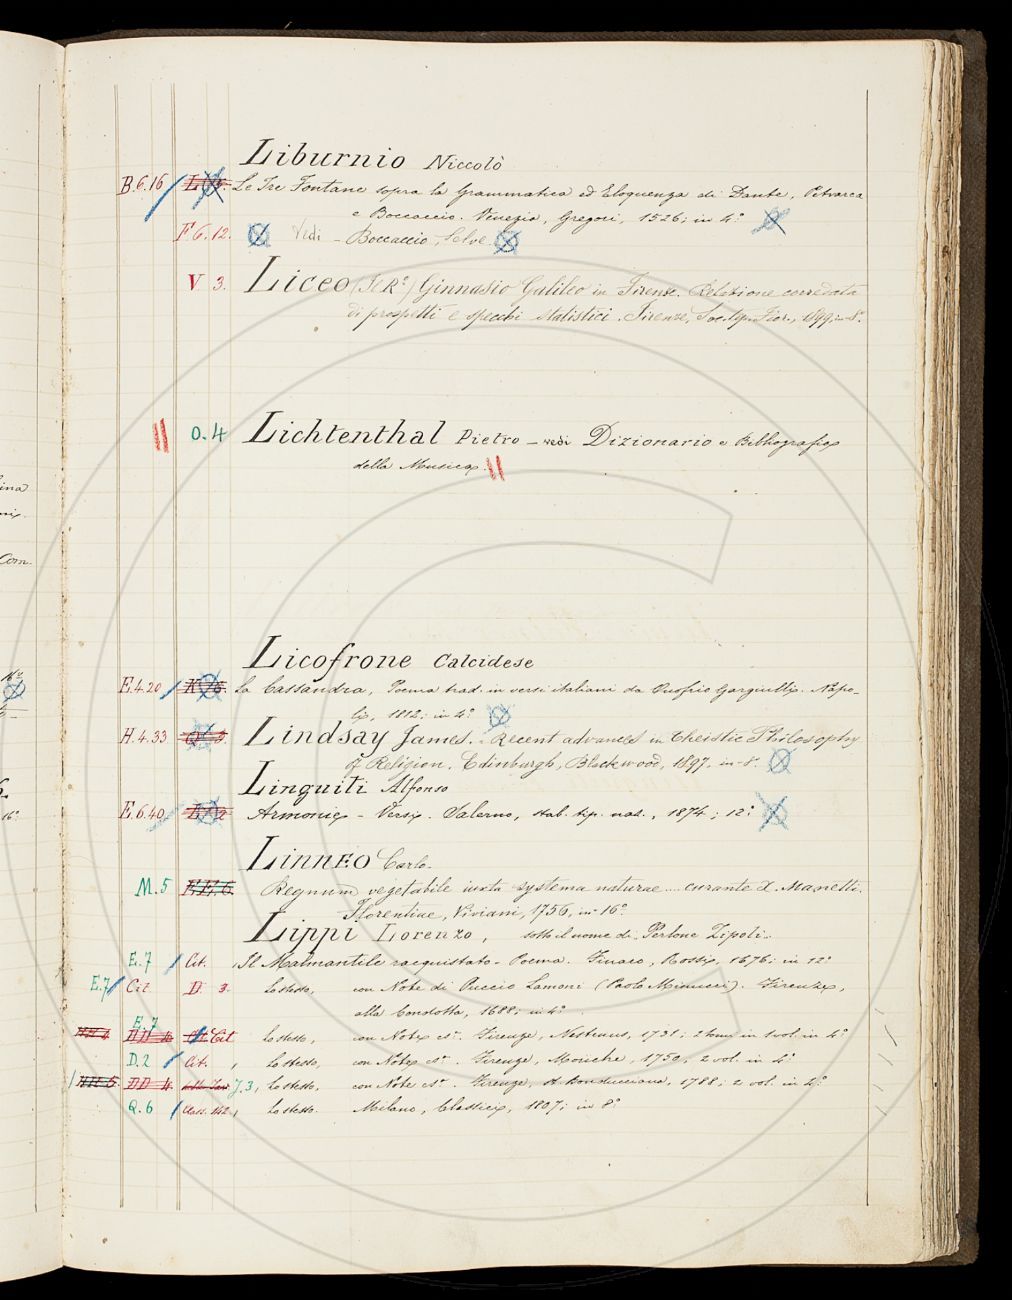 Liburnio Niccolò
B.6.16 Le Tre Fontane sopra la Grammatica ed Eloquenza di Dante, Petrarca
e Boccaccio. Venezia, Gregori, 1526; in 4º
F.6.12. Vedi - Boccaccio, Selve
V 3. Liceo (Il Rº) Ginnasio Galileo in Firenze. Relazione corredata
di prospetti e specchi statistici. Firenze, Soc. Tip. Fior., 1899, in-8º.
O.4 Lichtenthal Pietro - vedi Dizionario e Bibliografia
della Musica.
Licofrone Calcidese
E.4.20 La Cassandra, Poema trad. in versi italiani da Onofrio Gargiulli. Napo-
li, 1812; in 4º
H.4.33 Lindsay James. - Recent advances in Theistic Philosophy
of Religion. Edinburgh, Blackwood, 1897, in-8º.
Linguiti Alfonso
E.6.40 Armonie - Versi. Salerno, stab. tip. naz., 1874; 12º
Linneo Carlo.
M.5 EE.6. Regnum vegetabile iuxta systema naturae .... curante X. Manetti.
Florentiae, Viviani, 1756, in-16º.
Lippi Lorenzo, sotto il nome di Perlone Zipoli.
E.7 Cit. Il Malmantile racquistato. Poema. Finaro, Rossi, 1676; in 12º
E.7 Cit D. 3. Lo stesso, con Note di Puccio Lamoni (Paolo Minucci). Firenze,
alla Condotta, 1688; in 4º
E.7 DD 4 Cit Lo stesso, con Note &c. Firenze, Nestenus, 1731; 2 tomi in 1 vol. in 4º
D.2 Cit. Lo stesso, con Note &c. Firenze, Moücke, 1750, 2 vol. in 4º
DD 4. J.3, Lo stesso, con Note &c. Firenze, Bonducciana, 1788; 2 vol. in 4º
Q.6 Class. 142, Lo stesso. Milano, Classici, 1807; in 8º